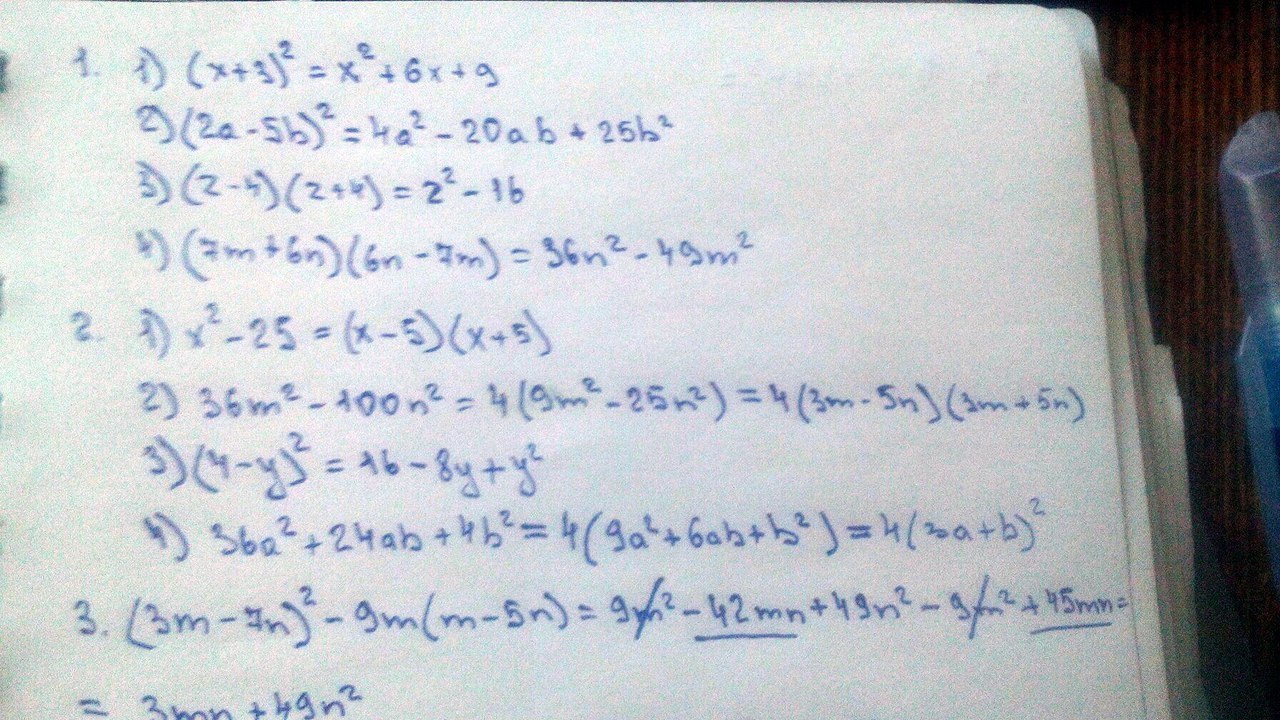 1. 1) (x+3)² = x² + 6x + 9
2) (2a - 5b)² = 4a² - 20ab + 25b²
3) (z-4)(z+4) = z² - 16
4) (7m+6n)(6n-7m) = 36n² - 49m²
2. 1) x² - 25 = (x-5)(x+5)
2) 36m² - 100n² = 4(9m² - 25n²) = 4(3m-5n)(3m+5n)
3) (4-y)² = 16 - 8y + y²
4) 36a² + 24ab + 4b² = 4(9a² + 6ab + b²) = 4(3a+b)²
3. (3m - 7n)² - 9m(m-5n) = 9m² - 42mn + 49n² - 9m² + 45mn =
= 3mn + 49n²